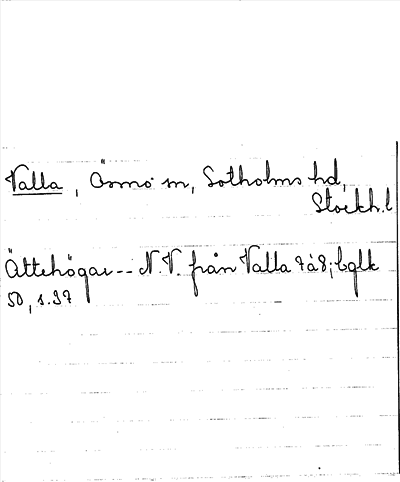 Valla, Ösmo sn, Sotholms hd,
Stockh.l
Ättehögar -- N.V. från Valla 7 à 8; bglk
50, s. 37